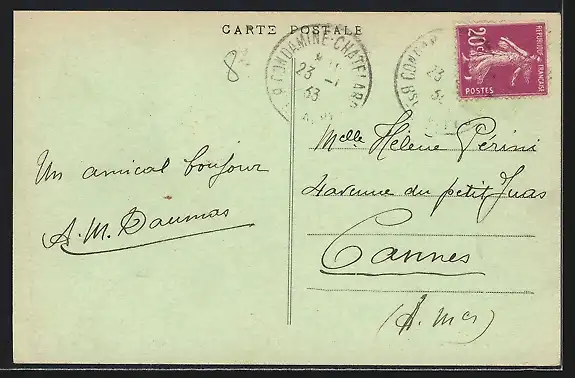 CARTE POSTALE
8
LA CONDAMINE-CHATELARD
23 -1
33
23
REPUBLIQUE FRANÇAISE
20c
POSTES
Melle Hélène Périni
4 avenue du petit Juas
Cannes
(A. Mes)
Un amical bonjour
A. M. Daumas